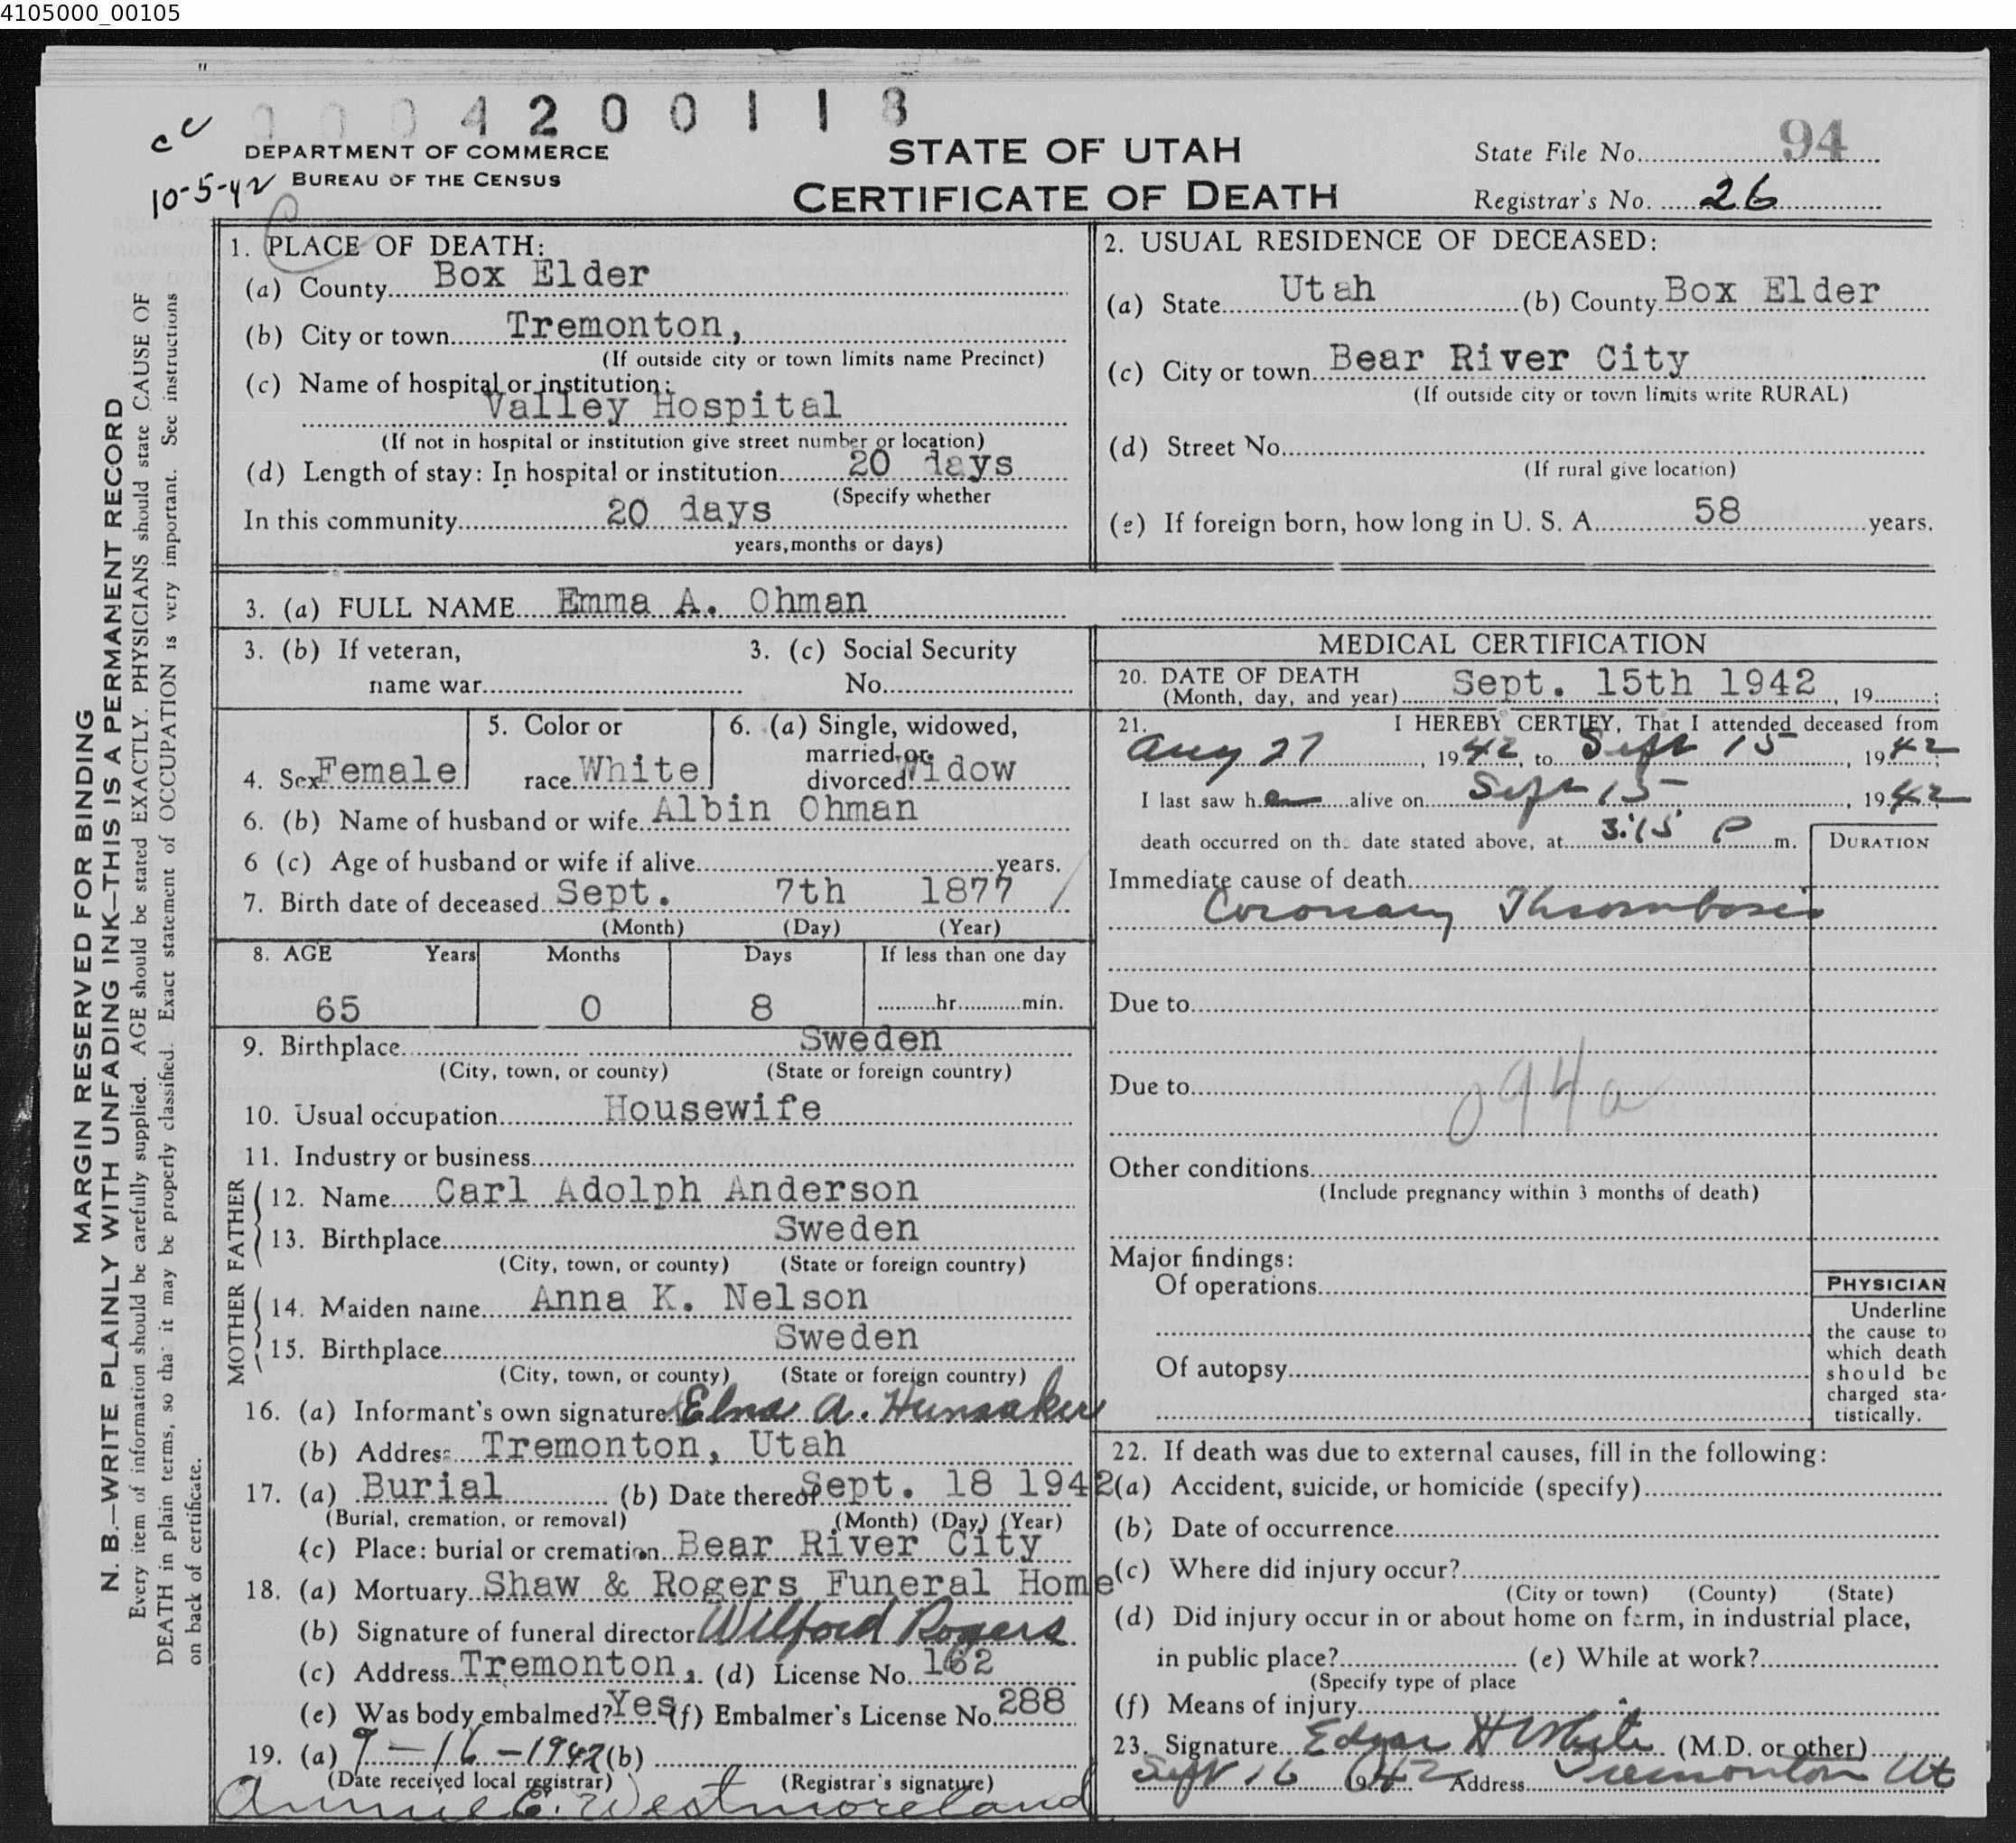 4105000_00105
"
0004200118
cc
10-5-42
DEPARTMENT OF COMMERCE
BUREAU OF THE CENSUS
STATE OF UTAH
CERTIFICATE OF DEATH
State File No. 94
Registrar's No. 26
MARGIN RESERVED FOR BINDING
N. B.—WRITE PLAINLY WITH UNFADING INK—THIS IS A PERMANENT RECORD
Every item of information should be carefully supplied. AGE should be stated EXACTLY. PHYSICIANS should state CAUSE OF
DEATH in plain terms, so that it may be properly classified. Exact statement of OCCUPATION is very important. See instructions
on back of certificate.
1. PLACE OF DEATH:
(a) County Box Elder
(b) City or town Tremonton,
(If outside city or town limits name Precinct)
(c) Name of hospital or institution:
Valley Hospital
(If not in hospital or institution give street number or location)
(d) Length of stay: In hospital or institution 20 days
(Specify whether
In this community 20 days
years, months or days)
2. USUAL RESIDENCE OF DECEASED:
(a) State Utah (b) County Box Elder
(c) City or town Bear River City
(If outside city or town limits write RURAL)
(d) Street No.
(If rural give location)
(e) If foreign born, how long in U. S. A. 58 years.
3. (a) FULL NAME Emma A. Ohman
3. (b) If veteran,
name war
3. (c) Social Security
No.
4. Sex Female
5. Color or
race White
6. (a) Single, widowed,
married, or
divorced Widow
6. (b) Name of husband or wife Albin Ohman
6 (c) Age of husband or wife if alive years.
7. Birth date of deceased Sept. 7th 1877
(Month) (Day) (Year)
8. AGE Years Months Days If less than one day
65 0 8 hr. min.
9. Birthplace Sweden
(City, town, or county) (State or foreign country)
10. Usual occupation Housewife
11. Industry or business
FATHER
12. Name Carl Adolph Anderson
13. Birthplace Sweden
(City, town, or county) (State or foreign country)
MOTHER
14. Maiden name Anna K. Nelson
15. Birthplace Sweden
(City, town, or county) (State or foreign country)
16. (a) Informant's own signature Elna A. Hunsaker
(b) Address Tremonton, Utah
17. (a) Burial (b) Date thereof Sept. 18 1942
(Burial, cremation, or removal) (Month) (Day) (Year)
(c) Place: burial or cremation Bear River City
18. (a) Mortuary Shaw & Rogers Funeral Home
(b) Signature of funeral director Wilford Rogers
(c) Address Tremonton, (d) License No. 162
(e) Was body embalmed? Yes (f) Embalmer's License No. 288
19. (a) 9-16-1942 (b)
(Date received local registrar) (Registrar's signature)
Annie C. Westmoreland
MEDICAL CERTIFICATION
20. DATE OF DEATH
(Month, day, and year) Sept. 15th 1942, 19 ;
21. I HEREBY CERTIFY, That I attended deceased from
Aug 27, 1942, to Sept 15, 1942;
I last saw her alive on Sept 15, 1942
death occurred on the date stated above, at 3:15 P m.
DURATION
Immediate cause of death
Coronary Thrombosis
Due to
Due to
094a
Other conditions
(Include pregnancy within 3 months of death)
Major findings:
Of operations
Of autopsy
PHYSICIAN
Underline
the cause to
which death
should be
charged sta-
tistically.
22. If death was due to external causes, fill in the following:
(a) Accident, suicide, or homicide (specify)
(b) Date of occurrence
(c) Where did injury occur?
(City or town) (County) (State)
(d) Did injury occur in or about home on farm, in industrial place,
in public place? (e) While at work?
(Specify type of place
(f) Means of injury
23. Signature Edgar H White (M.D. or other)
Sept 16 1942 Address Tremonton Ut